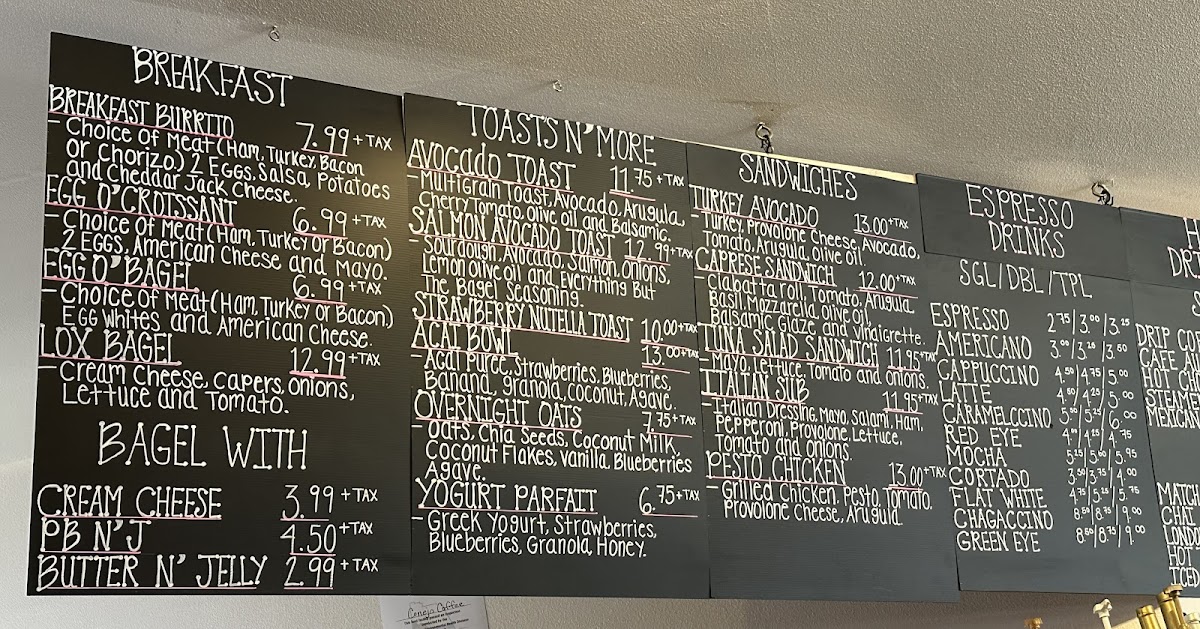 BREAKFAST
BREAKFAST BURRITO 7.99 + TAX
- Choice of Meat (Ham, Turkey, Bacon
or Chorizo) 2 Eggs, Salsa, Potatoes
and Cheddar Jack Cheese.
EGG O'CROISSANT 6.99 + TAX
- Choice of Meat (Ham, Turkey or Bacon)
2 Eggs, American Cheese and Mayo.
EGG O'BAGEL 6.99 + TAX
- Choice of Meat (Ham, Turkey or Bacon)
Egg Whites and American Cheese.
LOX BAGEL 12.99 + TAX
- Cream Cheese, Capers, Onions,
Lettuce and Tomato.
BAGEL WITH
CREAM CHEESE 3.99 + TAX
PB N'J 4.50 + TAX
BUTTER N' JELLY 2.99 + TAX
TOASTS N' MORE
AVOCADO TOAST 11.75 + TAX
- Multigrain Toast, Avocado, Arugula,
Cherry Tomato, Olive oil and Balsamic.
SALMON AVOCADO TOAST 12.99 + TAX
- Sourdough, Avocado, Salmon, Onions,
Lemon Olive oil and Everything But
The Bagel Seasoning.
STRAWBERRY NUTELLA TOAST 10.00 + TAX
ACAI BOWL 13.00 + TAX
- Acai Puree, Strawberries, Blueberries,
Banana, Granola, Coconut, Agave.
OVERNIGHT OATS 7.75 + TAX
- Oats, Chia Seeds, Coconut Milk,
Coconut Flakes, Vanilla, Blueberries
Agave.
YOGURT PARFAIT 6.75 + TAX
- Greek Yogurt, Strawberries,
Blueberries, Granola, Honey.
SANDWICHES
TURKEY AVOCADO 13.00 + TAX
- Turkey, Provolone Cheese, Avocado,
Tomato, Arugula, Olive oil.
CAPRESE SANDWICH 12.00 + TAX
- Ciabatta roll, Tomato, Arugula
Basil, Mozzarella, Olive oil,
Balsamic Glaze, and Vinaigrette.
TUNA SALAD SANDWICH 11.95 + TAX
- Mayo, Lettuce, Tomato and onions.
ITALIAN SUB 11.95 + TAX
- Italian Dressing, Mayo, Salami, Ham,
Pepperoni, Provolone, Lettuce,
Tomato and onions.
PESTO CHICKEN 13.00 + TAX
- Grilled Chicken, Pesto, Tomato,
Provolone Cheese, Arugula.
ESPRESSO
DRINKS
SGL/DBL/TPL
ESPRESSO 2.75/3.00/3.25
AMERICANO 3.00/3.25/3.50
CAPPUCCINO 4.50/4.75/5.00
LATTE 4.50/4.25/5.00
CARAMELCCINO 5.50/5.25/6.00
RED EYE 4.00/4.25/4.75
MOCHA 5.25/5.60/5.95
CORTADO 3.50/3.75/4.00
FLAT WHITE 4.75/5.25/5.75
CHAGACCINO 8.50/8.75/9.00
GREEN EYE 8.50/8.75/9.00
DRIP
CAFE
HOT
STEAME
MEXICAN
MATCH
CHAI
LONDO
HOT
ICED
Coneja Coffee